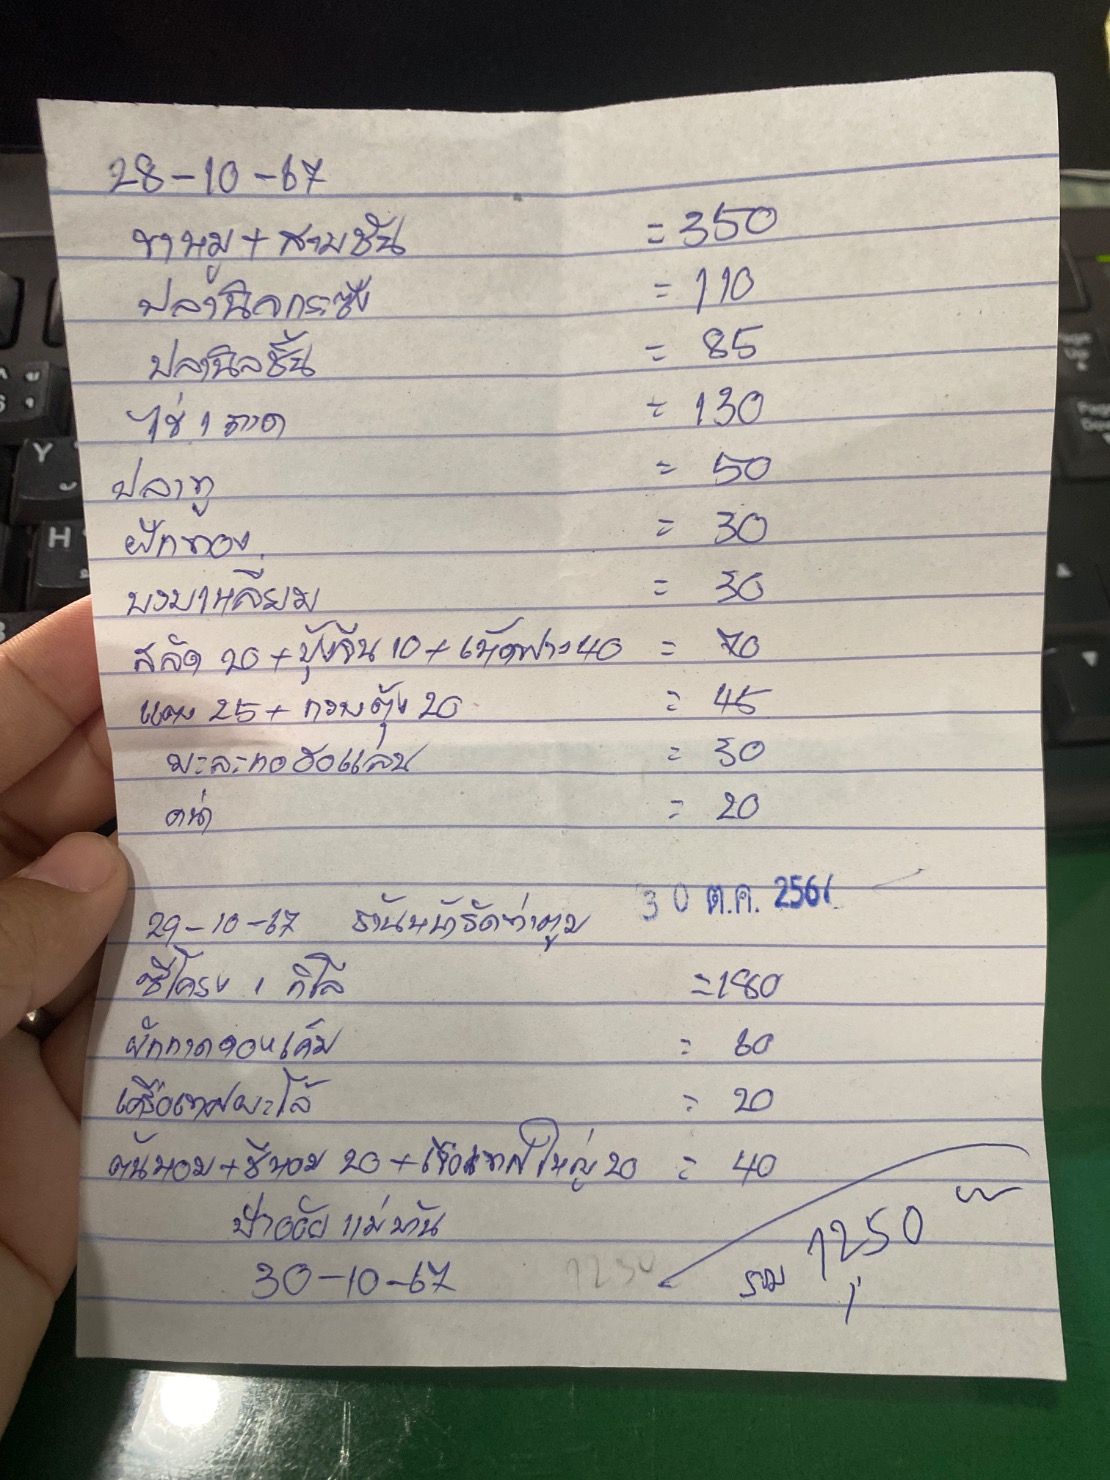 28-10-67
ขาหมู + สามชั้น = 350
ปลานิลกระชัง = 110
ปลานิลชิ้น = 85
ไข่ 1 ถาด = 130
ปลาทู = 50
ฝักทอง = 30
บวบเหลี่ยม = 30
สลัด 20 + ปุ้งจีน 10 + เห็ดฟาง 40 = 70
แตง 25 + กวางตุ้ง 20 = 45
มะละกอ = 30
คน่า = 20
30 ต.ค. 256
29-10-67 ร้านหน้าวัดท่าตูม
ซี่โครง 1 กิโล = 180
ผักกาดดองเค็ม = 60
เครื่องเทศพะโล้ = 20
ต้นหอม + ชีหอม 20 + ใหญ่ 20 = 40
1250
30-10-67
รวม 1250